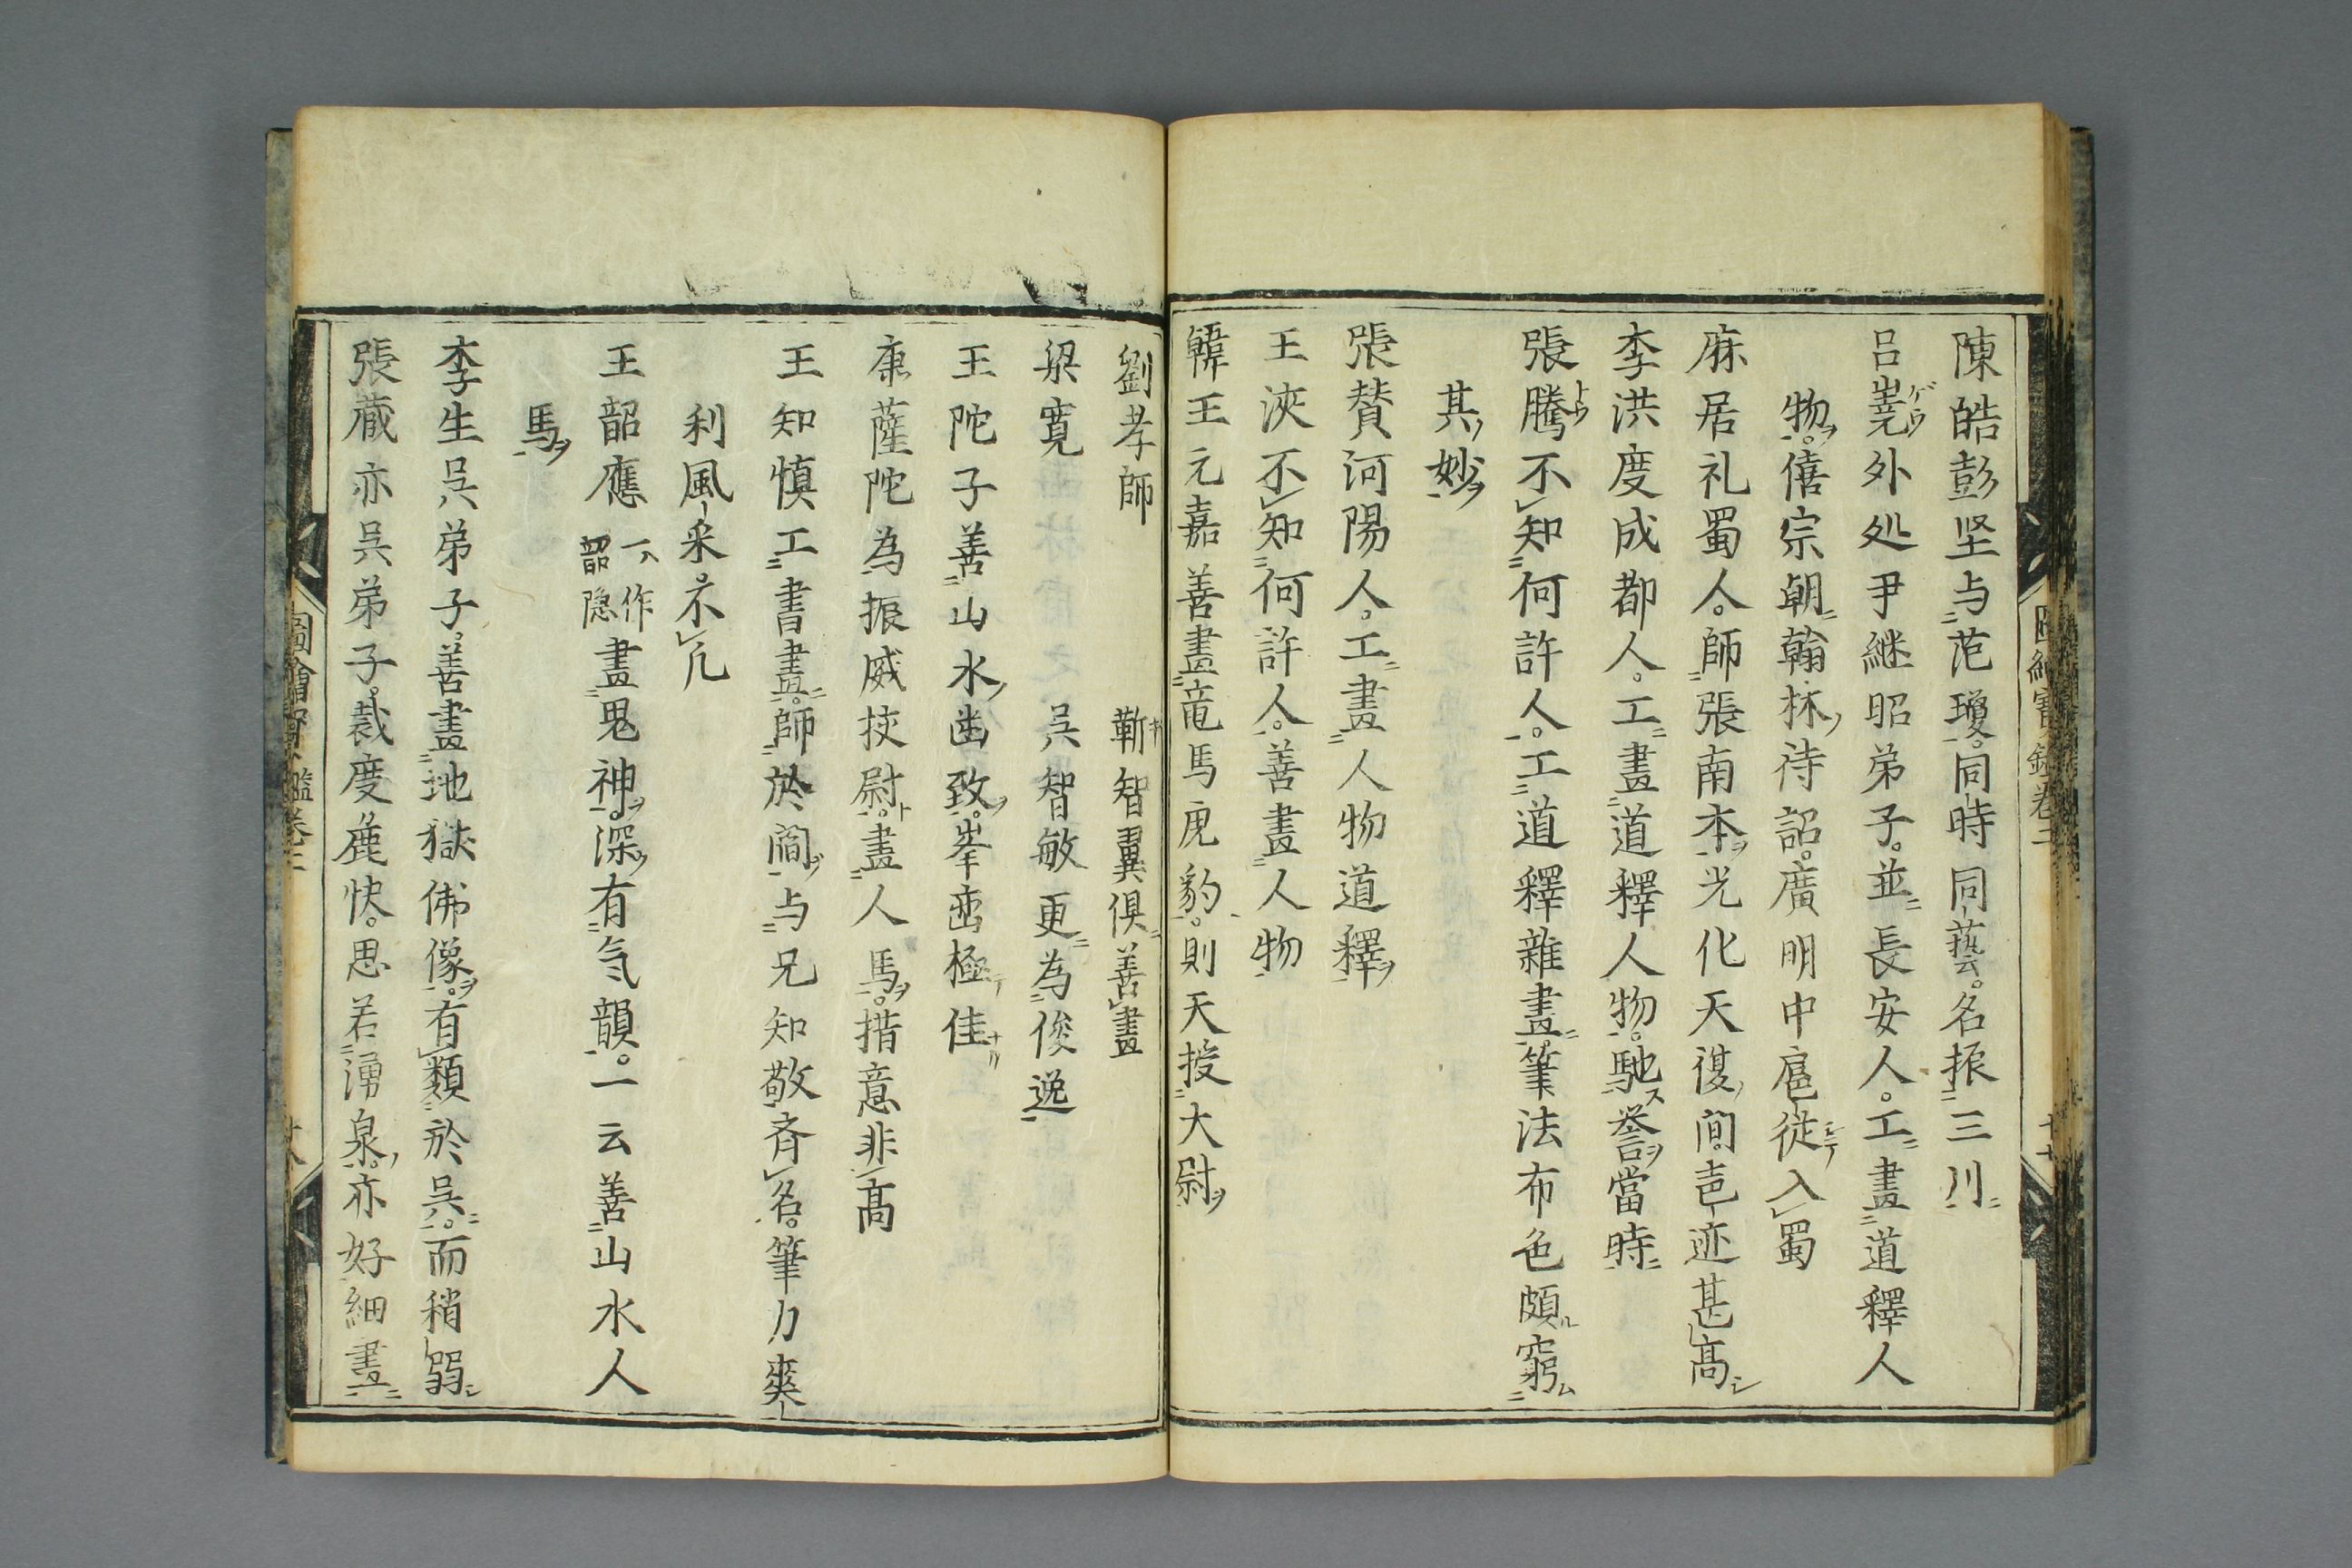 陳皓彭坚与范瓊同時同藝名振三川
吕嶤外処尹継昭弟子並長安人工畫道釋人
物僖宗朝翰林待詔廣明中扈従入蜀
麻居礼蜀人師張南本光化天復間声迹甚高
李洪度成都人工畫道釋人物馳誉當時
張騰不知何許人工道釋雜畫筆法布色頗窮
其妙
張賛河陽人工畫人物道釋
王浹不知何許人善畫人物
韓王元嘉善畫竜馬虎豹則天授大尉
劉孝師　靳智翼俱善畫
梁寛　呉智敏更為俊逸
王陀子善山水幽致峯巒極佳
康薩陀為振威挍尉畫人馬措意非高
王知慎工書畫師於閻与兄知敬斉名筆力爽
利風采不凢
王韶應一作韶隐畫鬼神深有気韻一云善山水人
馬
李生呉弟子善畫地獄佛像有類於呉而稍弱
張蔵亦呉弟子裁度麁快思若湧泉亦好細畫